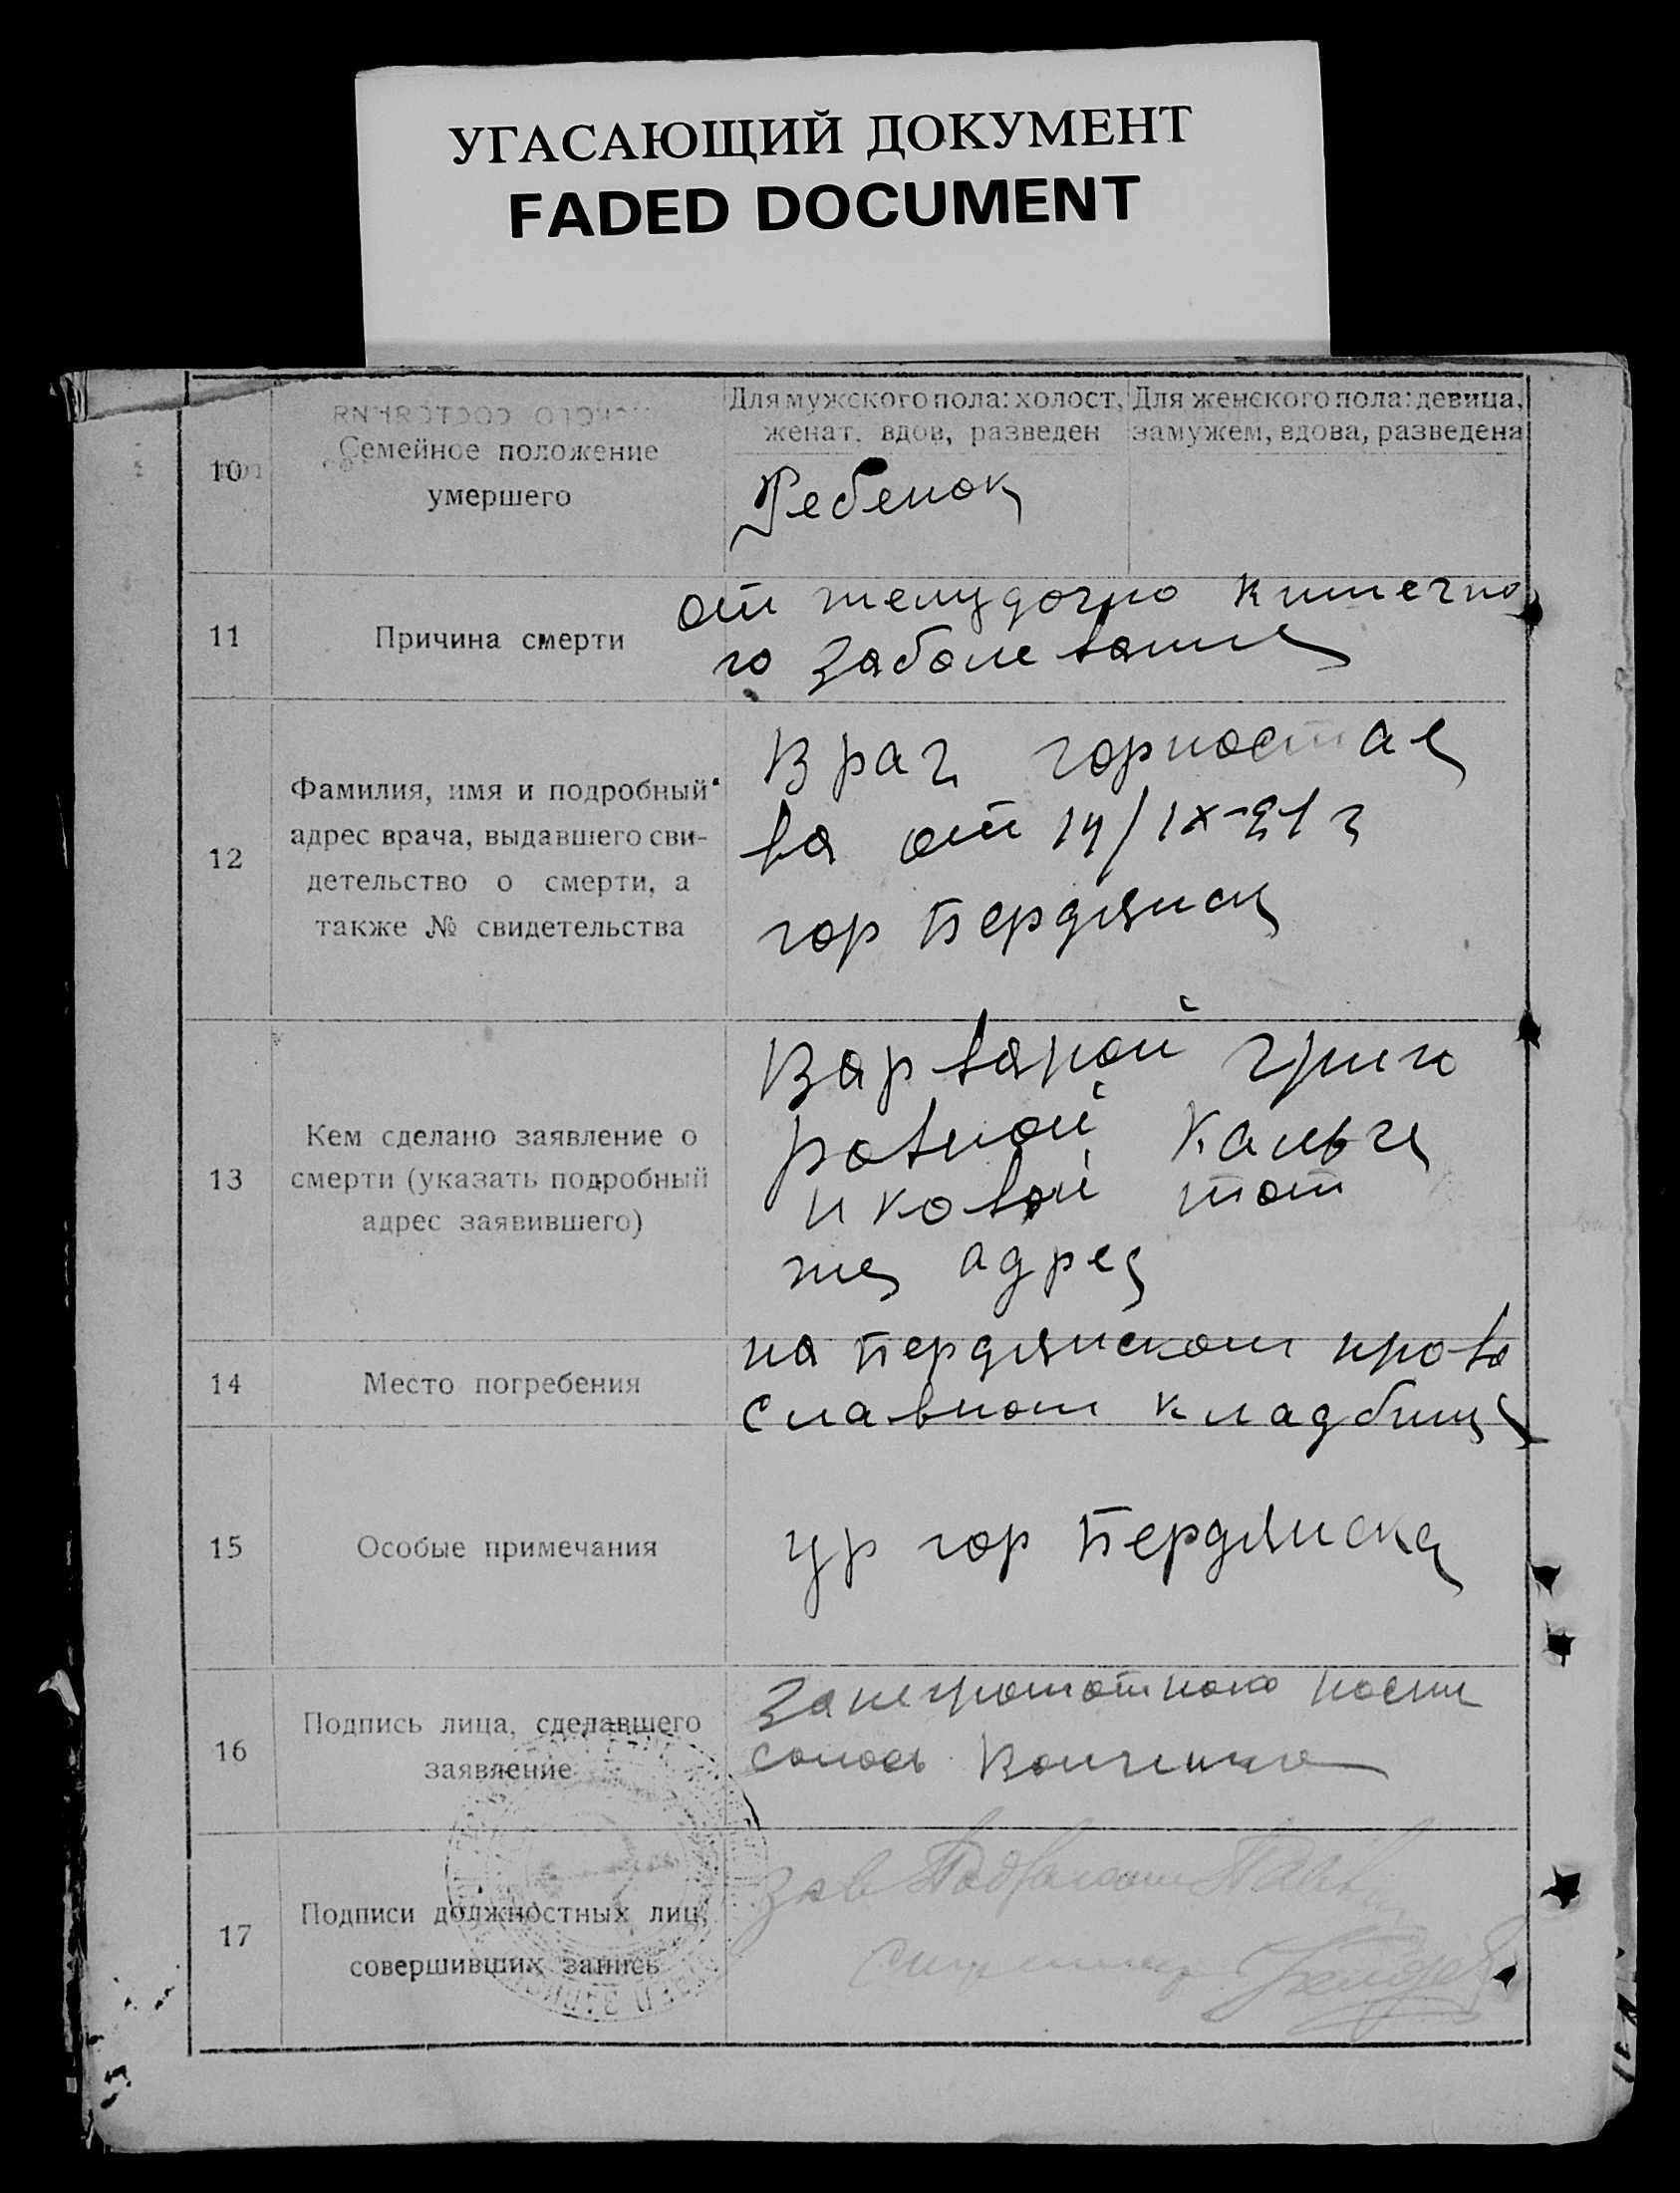 УГАСАЮЩИЙ ДОКУМЕНТ
FADED DOCUMENT
10
Семейное положение
умершего
Для мужского пола: холост,
женат, вдов, разведен
Для женского пола: девица,
замужем, вдова, разведена
Ребенок
11
Причина смерти
от желудочно кишечно
го заболевания
12
Фамилия, имя и подробный
адрес врача, выдавшего сви-
детельство о смерти, а
также № свидетельства
Врач горностае
ва от 14/IX-21 г
гор Бердянск
13
Кем сделано заявление о
смерти (указать подробный
адрес заявившего)
Варварой Григо
ровной
тот
же адрес
14
Место погребения
на Бердянском право
славном кладбище
15
Особые примечания
ур гор Бердянска
16
Подпись лица, сделавшего
заявление
За неграмотного
17
Подписи должностных лиц,
совершивших запись
Зав